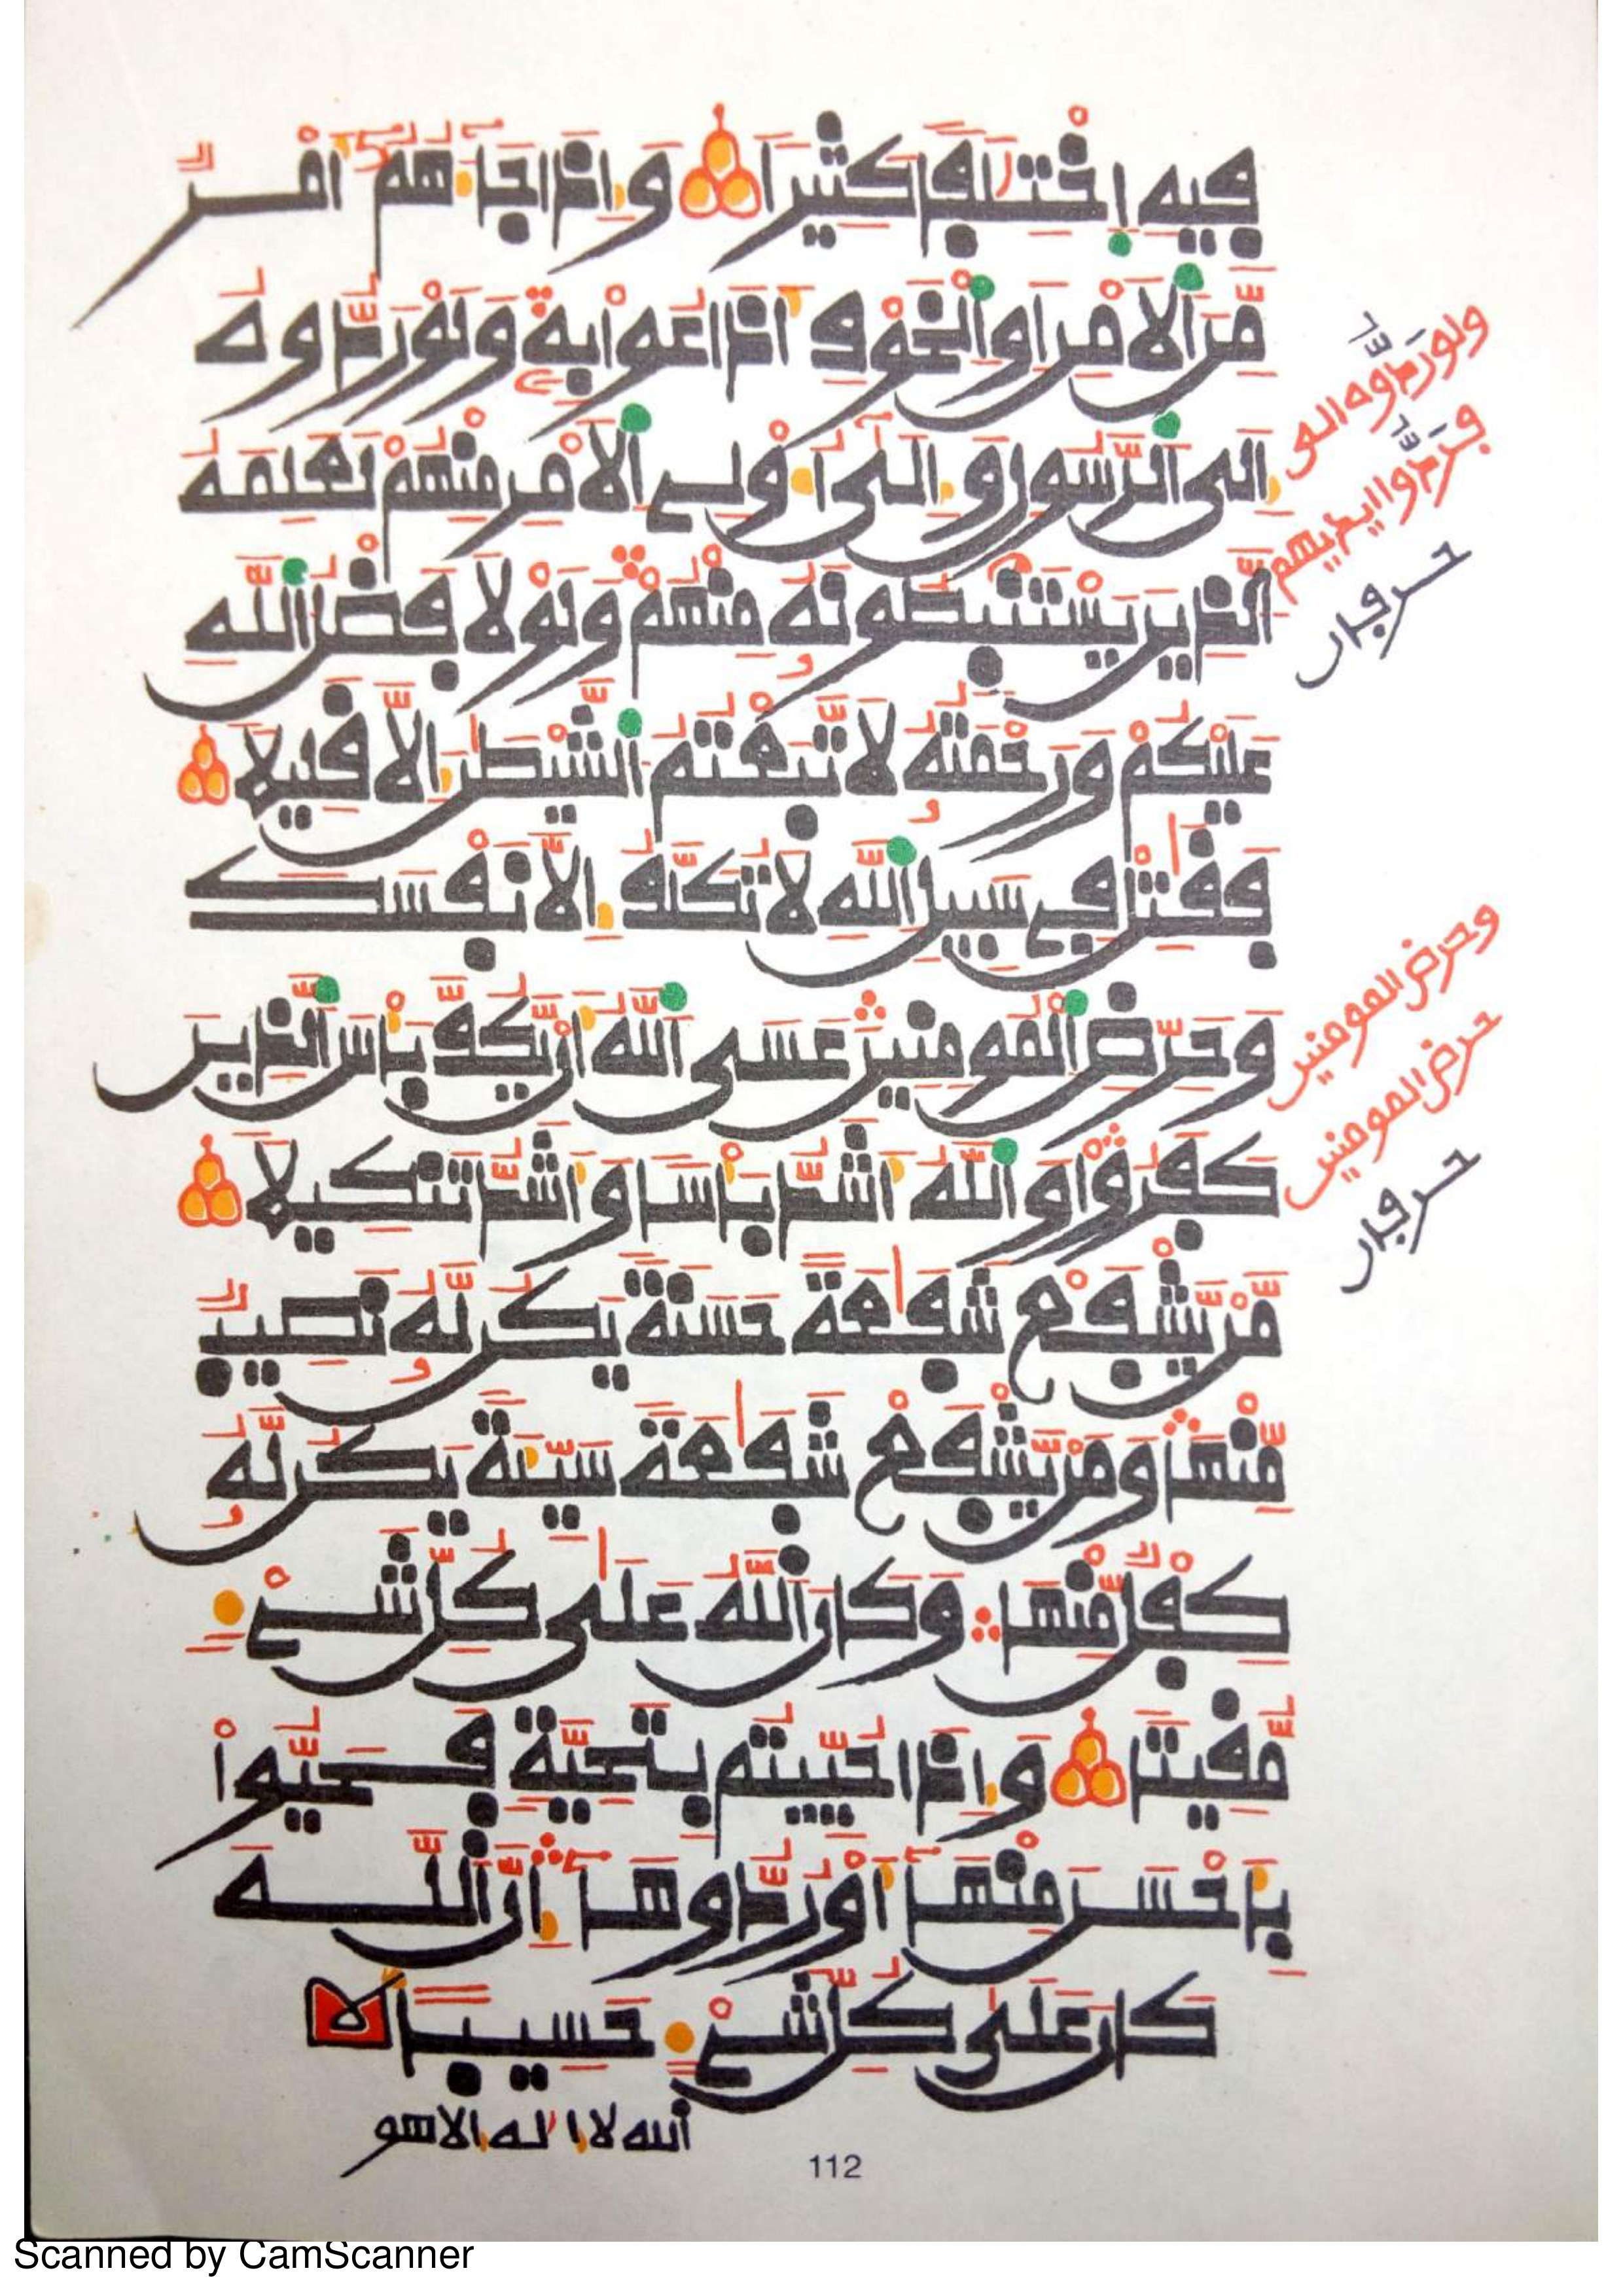 فِيهِ اِخْتِلَٰفاً كَثِيراً وَإِذَا جَآءَهُمُۥٓ أَمْرٌ
مِّنَ اَلَامْنِ أَوِ اِلْخَوْفِ أَذَاعُواْ بِهِۦ وَلَوْ رَدُّوهُ
إِلَى اَلرَّسُولِ وَإِلَىٰٓ أُوْلِے اِلَامْرِ مِنْهُمْ لَعَلِمَهُ
اُلذِينَ يَسْتَنۢبِطُونَهُۥ مِنْهُمْ وَلَوْلَا فَضْلُ اُللَّهِ
عَلَيْكُمْ وَرَحْمَتُهُۥ لَاتَّبَعْتُمُ اُلشَّيْطَٰنَ إِلَّا قَلِيلاً
فَقَٰتِلْ فِے سَبِيلِ اِللَّهِ لَا تُكَلَّفُ إِلَّا نَفْسَكَ
وَحَرِّضِ اِلْمُومِنِينَ عَسَى اَللَّهُ أَنْ يَّكُفَّ بَأْسَ اَلذِينَ
كَفَرُواْ وَاللَّهُ أَشَدُّ بَأْساً وَأَشَدُّ تَنكِيلاً
مَّنْ يَّشْفَعْ شَفَٰعَةً حَسَنَةً يَكُن لَّهُۥ نَصِيبٌ
مِّنْهَا وَمَنْ يَّشْفَعْ شَفَٰعَةً سَيِّئَةً يَكُن لَّهُۥ
كِفْلٌ مِّنْهَا وَكَانَ اَللَّهُ عَلَىٰ كُلِّ شَےْءٍ
مُّقِيتاً وَإِذَا حُيِّيتُم بِتَحِيَّةٍ فَحَيُّواْ
بِأَحْسَنَ مِنْهَآ أَوْ رُدُّوهَآ إِنَّ اَللَّهَ
كَانَ عَلَىٰ كُلِّ شَےْءٍ حَسِيباً
اَللَّهُ لَا إِلَٰهَ إِلَّا هُوَ
ولو ردوه الى
وحرض المومنين
حرض المومنين
112
Scanned by CamScanner